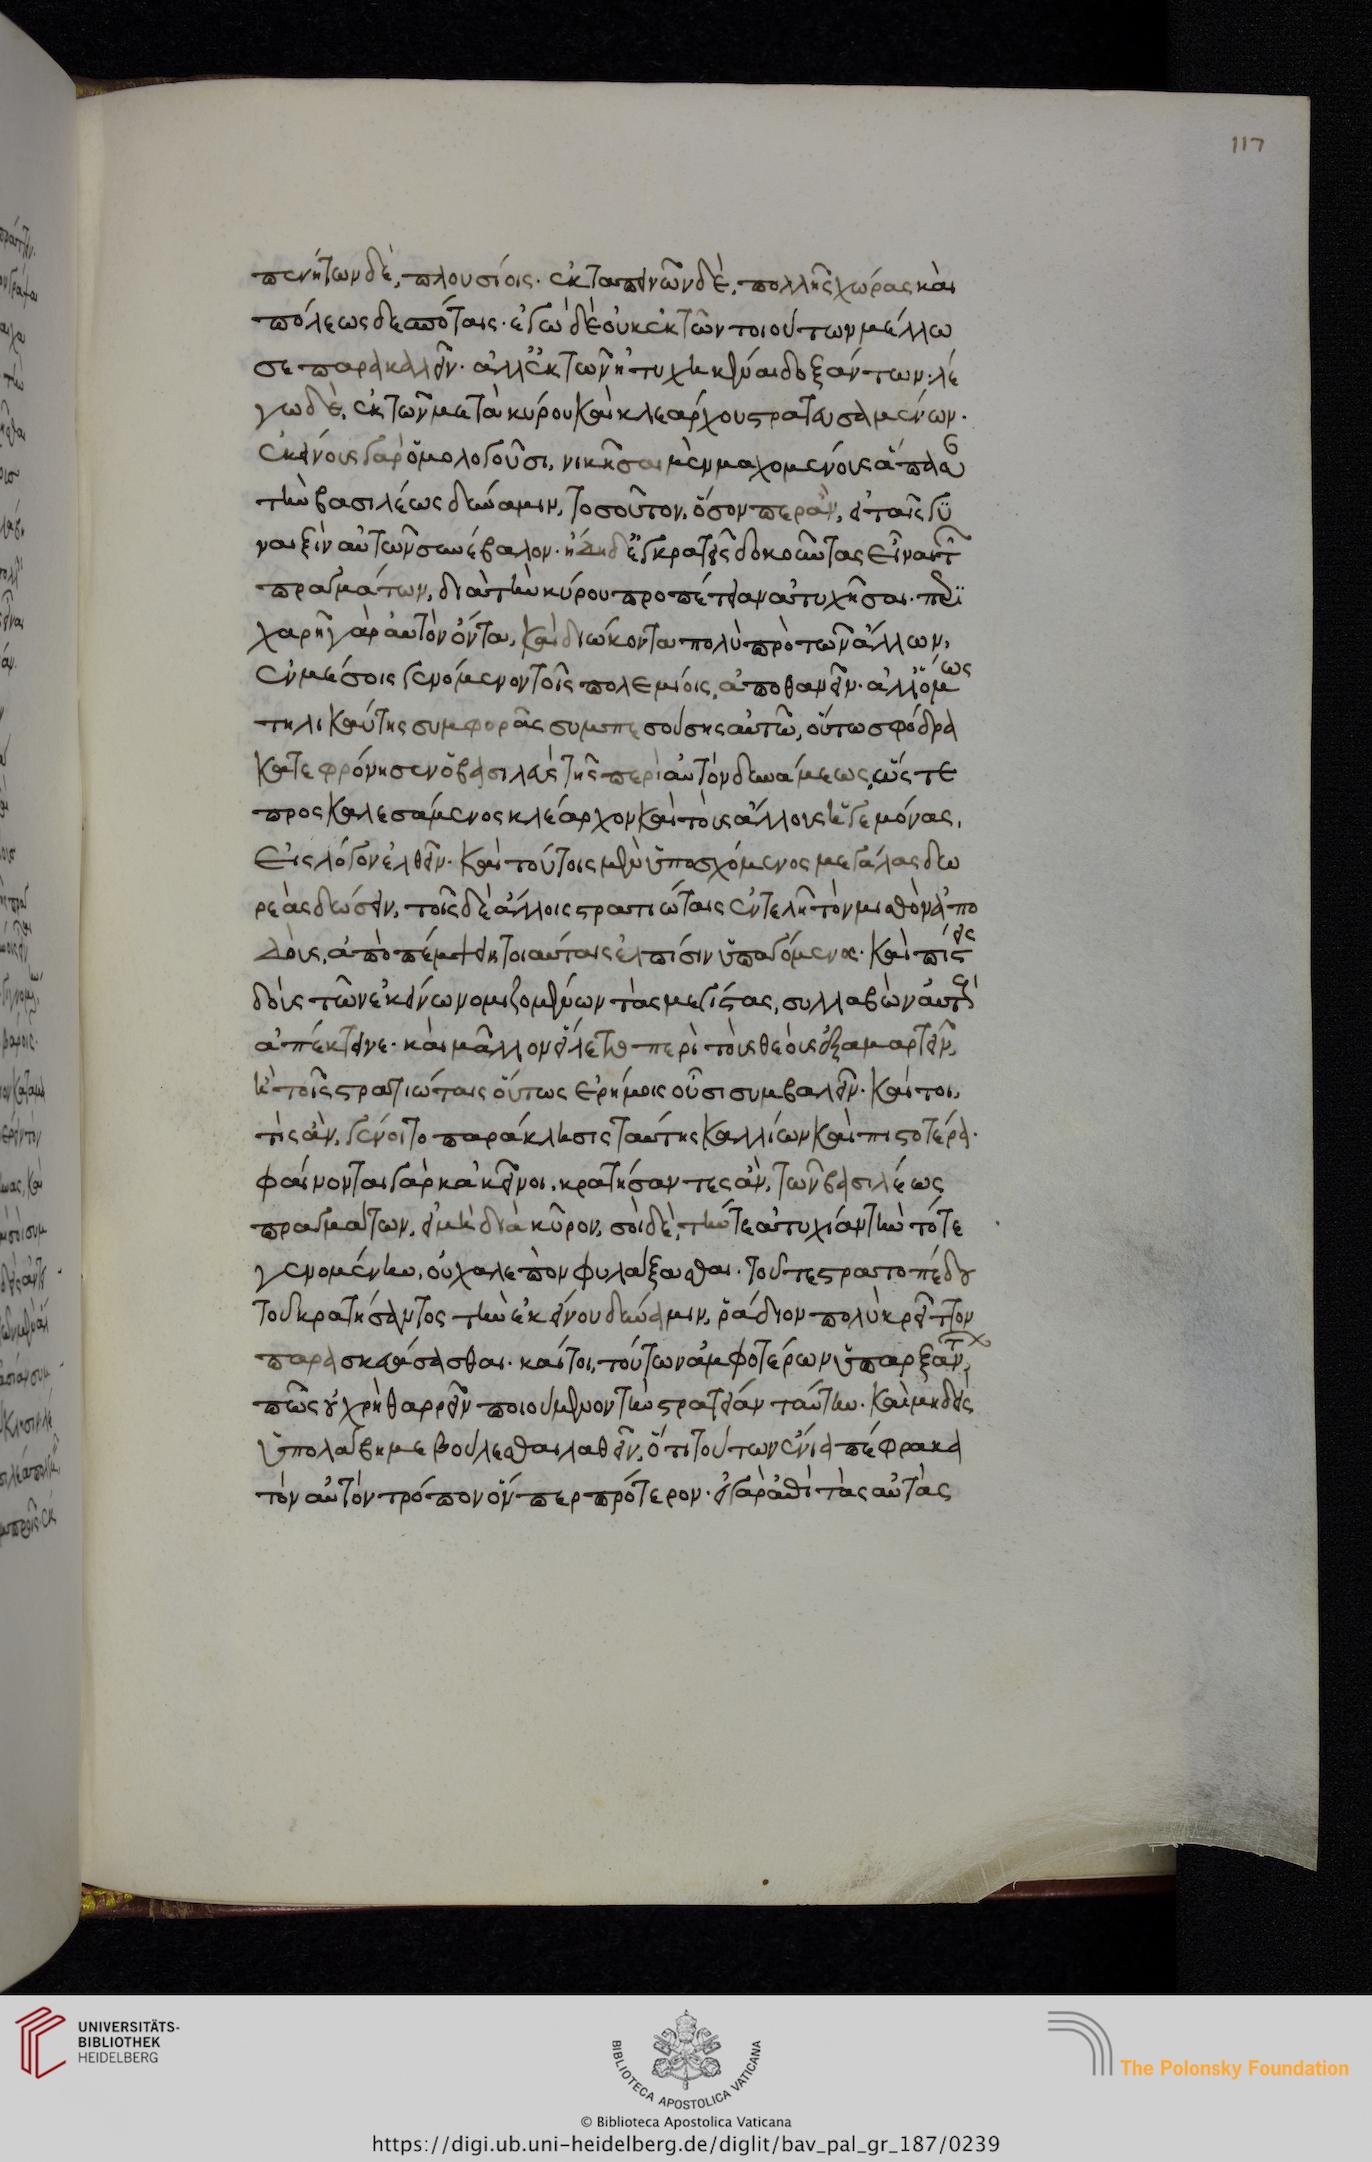 117
πενήτων δὲ, πλουσίοις· ἐκ ταπεινῶν δὲ, πολλῆς χώρας καὶ
πόλεως δεσπόταις· ἐγὼ δὲ οὐκ ἐκ τῶν τοιούτων μέλλω
σε παρακαλεῖν· ἀλλ' ἐκ τῶν ἠτυχηκέναι δοξάντων· λέ
γω δὲ, ἐκ τῶν μετὰ κύρου καὶ κλεάρχου στρατευσαμένων·
ἐκείνους γὰρ ὁμολογοῦσι, νικῆσαι μὲν μαχομένους ἅπασαν
τὴν βασιλέως δύναμιν, τοσοῦτον, ὅσον περ ἂν, εἰ ταῖς γυ
ναιξὶν αὐτῶν συνέβαλον· ἤδη δὲ ἐγκρατεῖς δοκοῦντας εἶναι τῶν
πραγμάτων, διὰ τὴν κύρου προπέτειαν ἀτυχῆσαι· περι
χαρῆ γὰρ αὐτὸν ὄντα, καὶ διώκοντα πολὺ πρὸ τῶν ἄλλων,
ἐν μέσοις γενόμενον τοῖς πολεμίοις, ἀποθανεῖν· ἀλλ' ὅμως
τηλικαύτης συμφορᾶς συμπεσούσης αὐτῷ, οὕτω σφόδρα
κατεφρόνησεν ὁ βασιλεὺς τῆς περὶ αὐτὸν δυνάμεως, ὥς τε
προσκαλεσάμενος κλέαρχον καὶ τοὺς ἄλλους ἡγεμόνας,
εἰς λόγον ἐλθεῖν· καὶ τούτοις μὲν ὑποσχόμενος μεγάλας δω
ρεὰς δώσειν, τοῖς δὲ ἄλλοις στρατιώταις ἐντελῆ τὸν μισθὸν ἀπο
δοὺς, ἀποπέμψειν τοιαύταις ἐλπίσιν ὑπαγόμενος· καὶ πίστεις
δοὺς τῶν ἐκεῖ νομιζομένων τὰς μεγίστας, συλλαβὼν αὐτοὺς
ἀπέκτεινε· καὶ μᾶλλον εἵλετο περὶ τοὺς θεοὺς ἐξαμαρτεῖν,
ἢ τοῖς στρατιώταις οὕτως ἐρήμοις οὖσι συμβαλεῖν· καίτοι,
τίς ἂν, γένοιτο παράκλησις ταύτης καλλίων καὶ πιστοτέρα·
φαίνονται γὰρ κἀκεῖνοι, κρατήσαντες ἂν, τῶν βασιλέως
πραγμάτων, εἰ μὴ διὰ κῦρον, σοὶ δὲ, τήν τε ἀτυχίαν τὴν τότε
γενομένην, οὐ χαλεπὸν φυλάξασθαι· τοῦ τε στρατοπέδου
τοῦ κρατήσαντος τὴν ἐκείνου δύναμιν, ῥάδιον πολὺ κρεῖττον
παρασκευάσασθαι· καίτοι, τούτων ἀμφοτέρων ὑπαρξάντων,
πῶς οὐ χρὴ θαρρεῖν ποιούμενον τὴν στρατείαν ταύτην· καὶ μηδεὶς
ὑπολάβῃ με βούλεσθαι λαθεῖν, ὅτι τούτων ἔνια πέφρακα
τὸν αὐτὸν τρόπον ὅν περ πρότερον· εἰ γὰρ ἐπὶ τὰς αὐτὰς
UNIVERSITÄTS-
BIBLIOTHEK
HEIDELBERG
BIBLIOTECA APOSTOLICA VATICANA
The Polonsky Foundation
© Biblioteca Apostolica Vaticana
https://digi.ub.uni-heidelberg.de/diglit/bav_pal_gr_187/0239